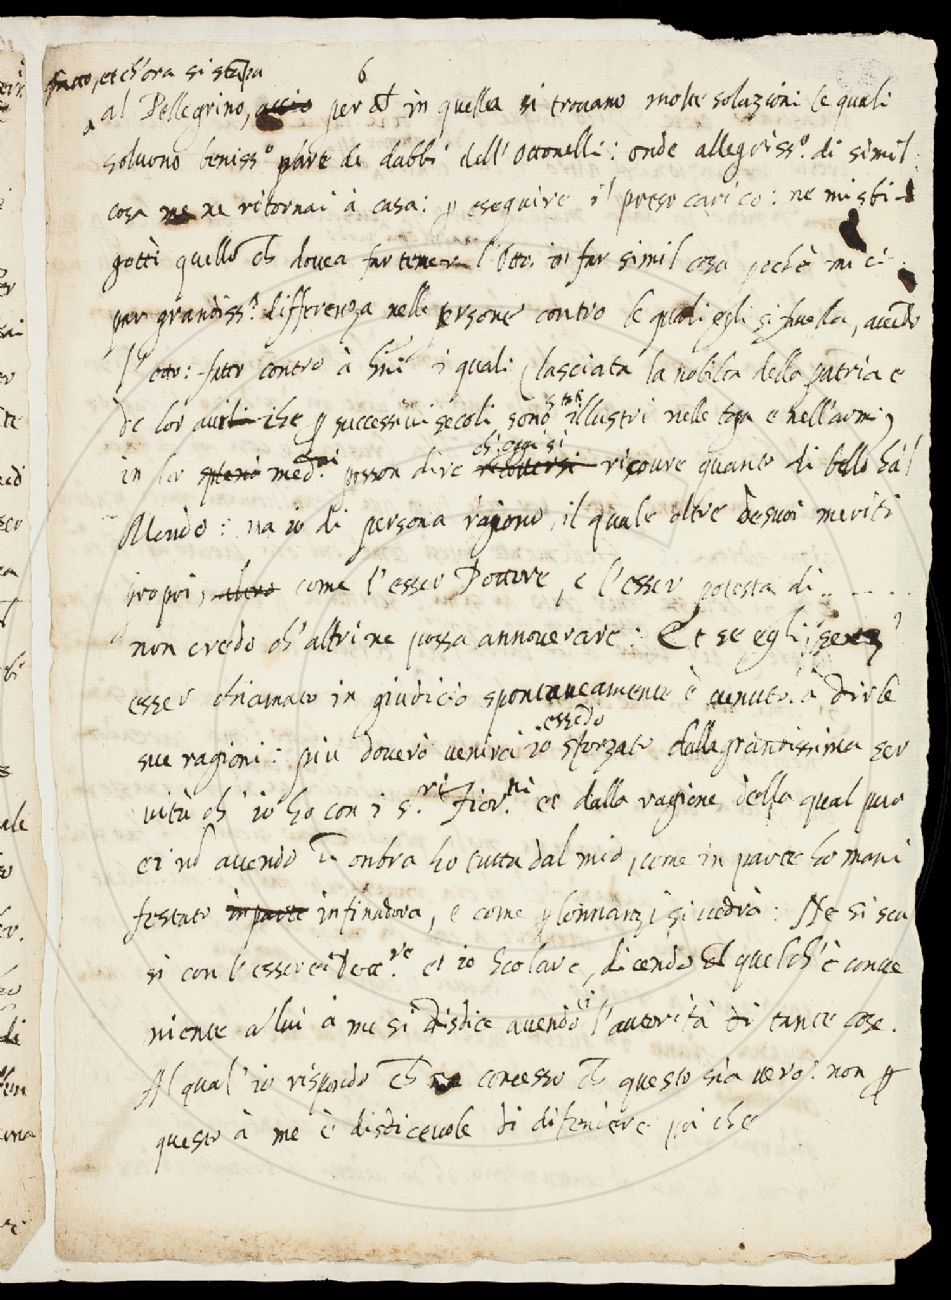 fatto, et ch'ora si stāpa
al Pellegrino, per ch' in quella si trovano molte soluzioni le quali
solvono beniss.º parte de dubbi dell'Ottonelli: onde allegriss.º di simil
cosa me ne ritornai à casa: p eseguire il preso carico: ne mi sbi-
gottì quello ch dovea far temer l'Otto: in far simil cosa pochè mi è
par grandiss.ª differenza nelle persone contro le quali egli si favella, avēdo
l'otto: fatto contro à hūi i quali (lasciata la nobiltà della patria e
de lor avi che p successivi secoli sono illustri nelle toga e nell'armi)
in lor med.mi posson dire ch'oggi si ricovre quanto di bello hà 'l
Mondo: ma io di persona ragiono, il quale oltre de suoi meriti
propri, come l'esser Dottore, e l'esser potestà di .. - - - .
non credo ch'altri ne possa annoverare: Et se egli, senz'
esser chiamato in giudicio spontaneamente è venuto à dir le
sue ragioni: più doverò venirci io essēdo sforzato dalla grandissima ser
vitù ch' io ho con i S.ri Fior.ni et dalla ragione, della qual pur
ei nō avendo ombra ho tutta dal mio, come in parte ho mani
festato in parte infinadora, e come p l'innanzi si vedrà: Ne si scu
si con l'essere ei Dott.re et io scolare, dicendo quel ch'è conve
niente a lui à me si disdice avendo ei l'autorità di tante cose.
Al qual' io rispōdo ch concesso ch questo sia vero: non p
questo à me è disdicevole di difendere poi che